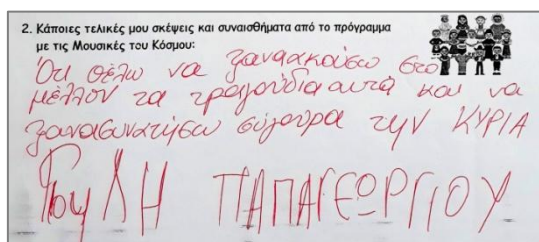 2. Κάποιες τελικές μου σκέψεις και συναισθήματα από το πρόγραμμα
με τις Μουσικές του Κόσμου:
Ότι θέλω να ξαναακούσω στο
μέλλον τα τραγούδια αυτά και να
ξανασυνατήσω σίγουρα την ΚΥΡΙΑ
ΠΑΠΑΓΕΩΡΓΙΟΥ